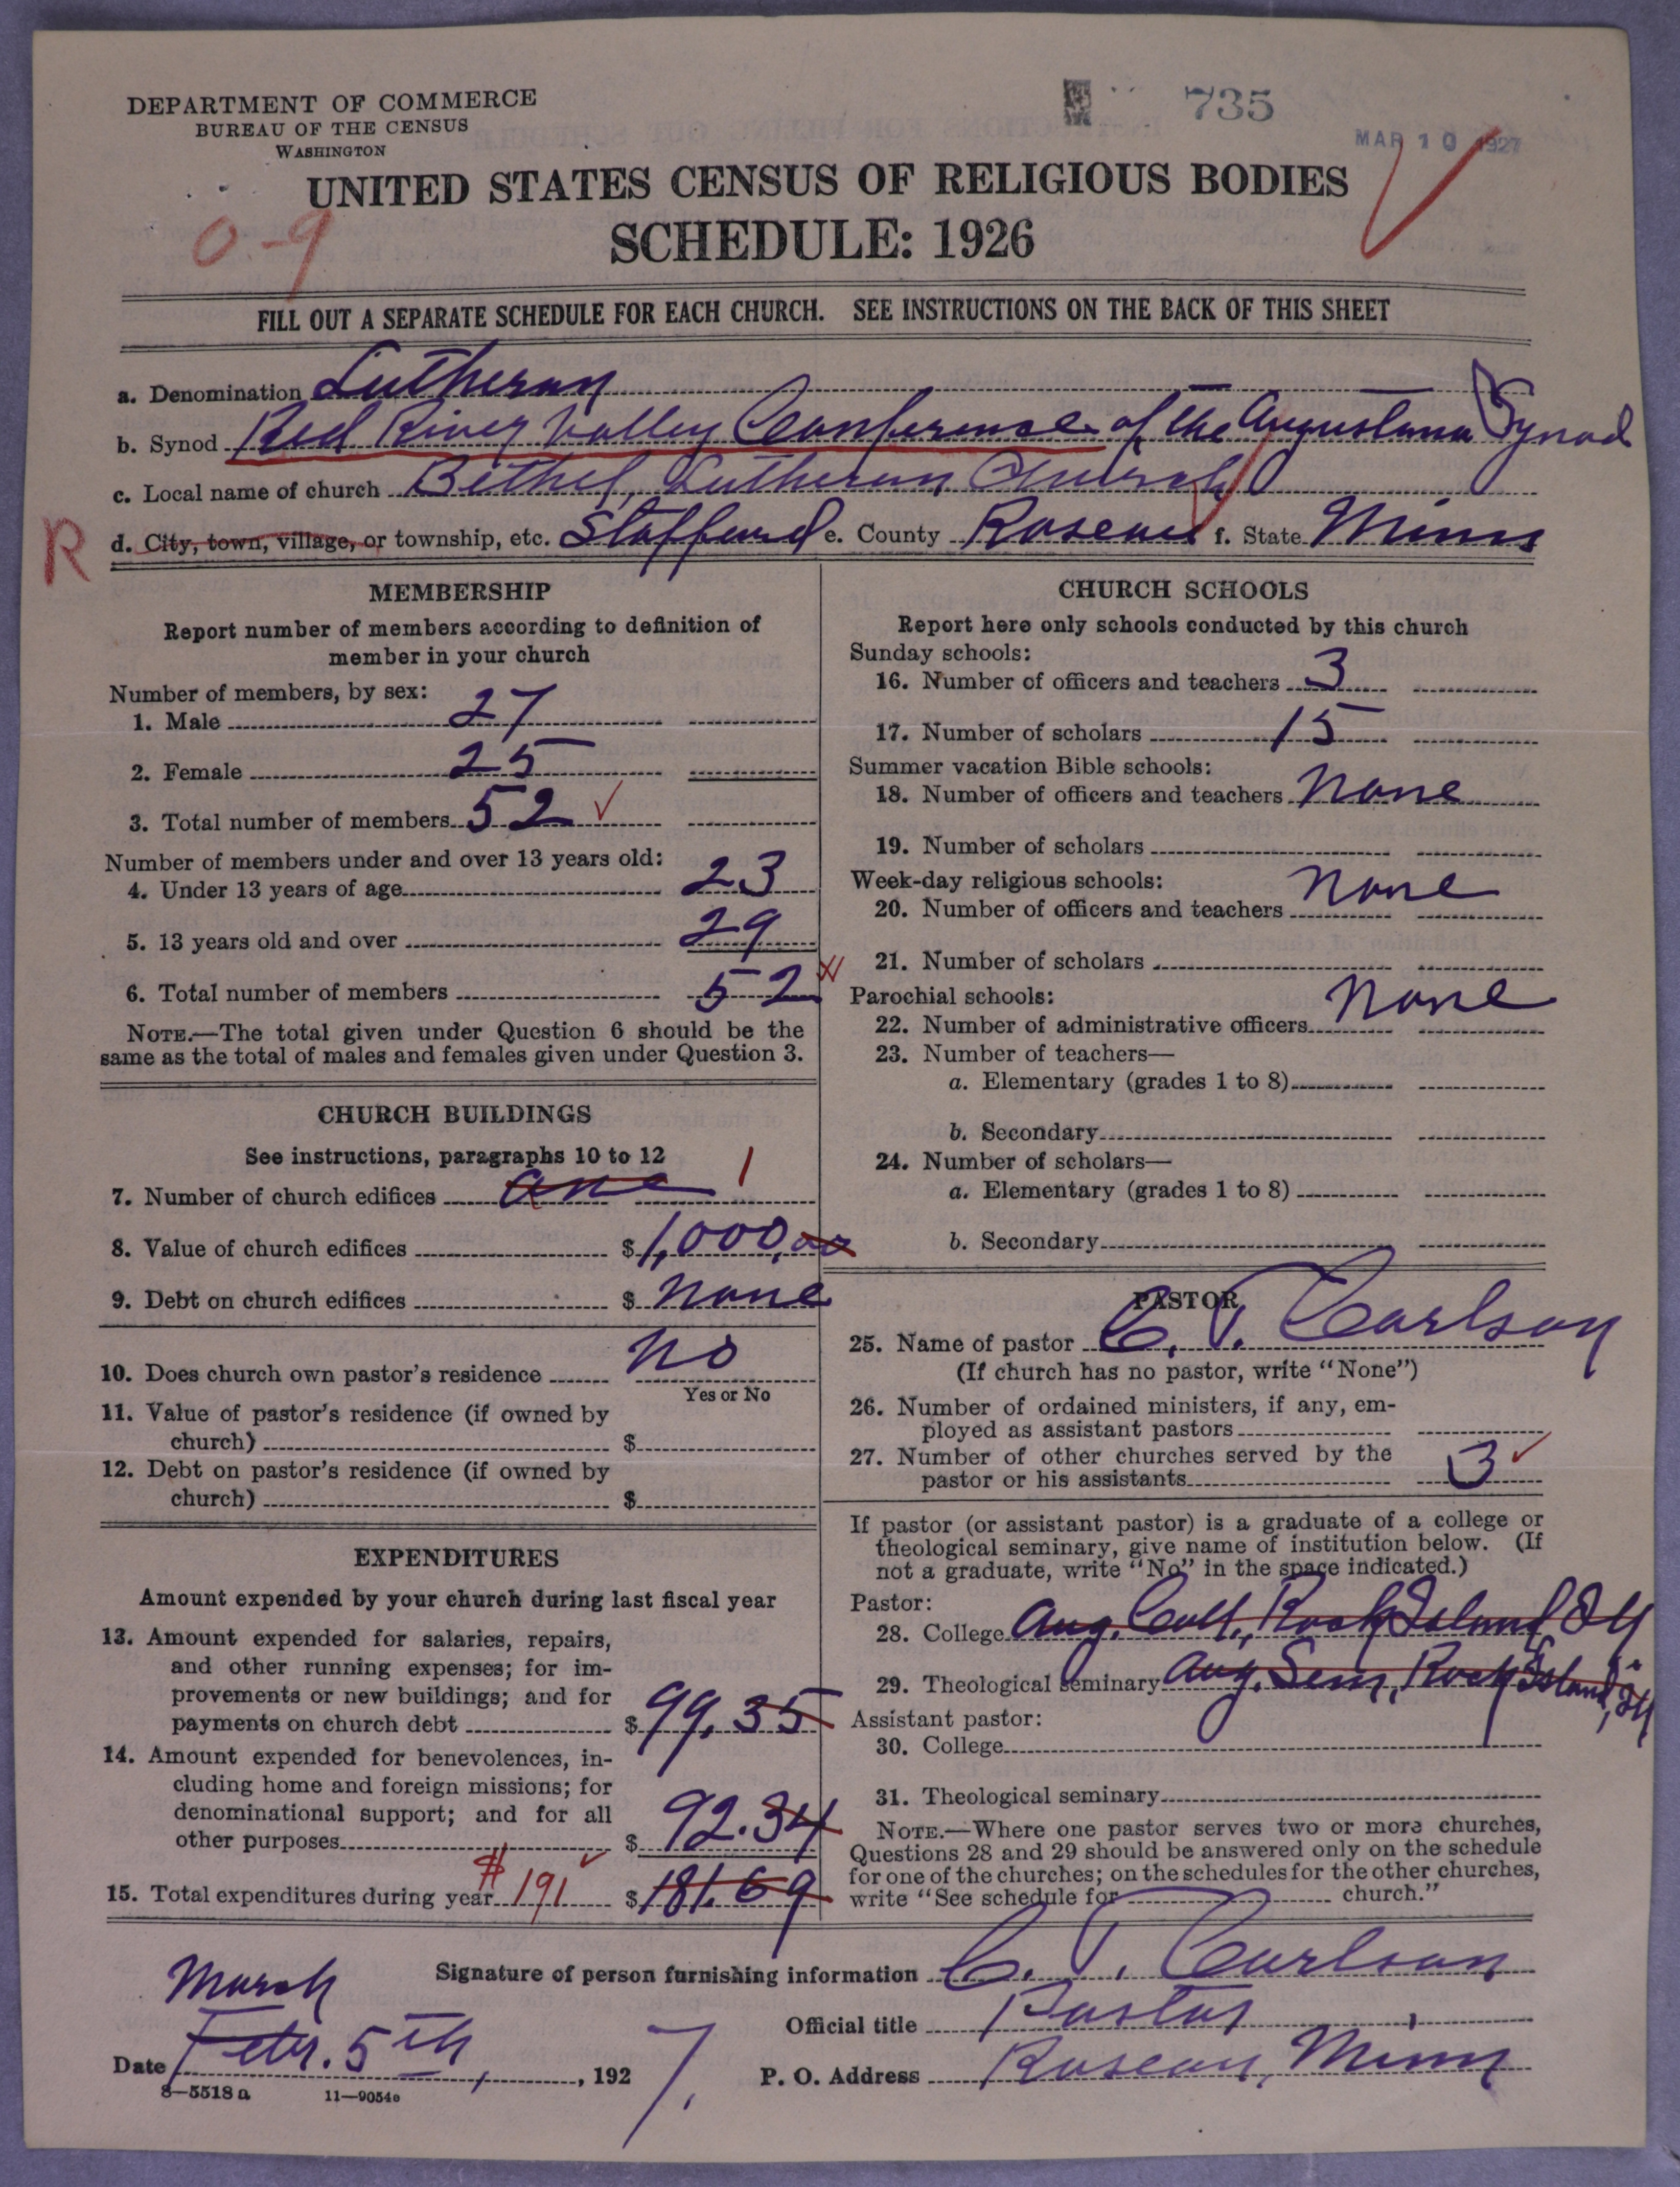 DEPARTMENT OF COMMERCE
BUREAU OF THE CENSUS
WASHINGTON
735
MAR 10 1927
UNITED STATES CENSUS OF RELIGIOUS BODIES
0-9
SCHEDULE: 1926
FILL OUT A SEPARATE SCHEDULE FOR EACH CHURCH. SEE INSTRUCTIONS ON THE BACK OF THIS SHEET
a. Denomination Lutheran
b. Synod Red River Valley Conference of the Augustana Synod
c. Local name of church Bethel Lutheran Church
R d. City, town, village, or township, etc. Stafford e. County Roseau f. State Minn
MEMBERSHIP
Report number of members according to definition of
member in your church
Number of members, by sex:
1. Male 27
2. Female 25
3. Total number of members 52
Number of members under and over 13 years old:
4. Under 13 years of age 23
5. 13 years old and over 29
6. Total number of members 52
NOTE.—The total given under Question 6 should be the
same as the total of males and females given under Question 3.
CHURCH BUILDINGS
See instructions, paragraphs 10 to 12
7. Number of church edifices one 1
8. Value of church edifices $ 1,000.00
9. Debt on church edifices $ none
10. Does church own pastor's residence no
Yes or No
11. Value of pastor's residence (if owned by
church) $
12. Debt on pastor's residence (if owned by
church) $
EXPENDITURES
Amount expended by your church during last fiscal year
13. Amount expended for salaries, repairs,
and other running expenses; for im-
provements or new buildings; and for
payments on church debt $ 99.35
14. Amount expended for benevolences, in-
cluding home and foreign missions; for
denominational support; and for all
other purposes $ 92.34
15. Total expenditures during year $191 $ 181.69
CHURCH SCHOOLS
Report here only schools conducted by this church
Sunday schools:
16. Number of officers and teachers 3
17. Number of scholars 15
Summer vacation Bible schools:
18. Number of officers and teachers none
19. Number of scholars
Week-day religious schools:
20. Number of officers and teachers none
21. Number of scholars
Parochial schools:
22. Number of administrative officers none
23. Number of teachers—
a. Elementary (grades 1 to 8)
b. Secondary
24. Number of scholars—
a. Elementary (grades 1 to 8)
b. Secondary
PASTOR
25. Name of pastor C. V. Carlson
(If church has no pastor, write "None")
26. Number of ordained ministers, if any, em-
ployed as assistant pastors
27. Number of other churches served by the
pastor or his assistants 3
If pastor (or assistant pastor) is a graduate of a college or
theological seminary, give name of institution below. (If
not a graduate, write "No" in the space indicated.)
Pastor:
28. College Aug. Coll., Rock Island, Ill
29. Theological seminary Aug. Sem., Rock Island, Ill
Assistant pastor:
30. College
31. Theological seminary
NOTE.—Where one pastor serves two or more churches,
Questions 28 and 29 should be answered only on the schedule
for one of the churches; on the schedules for the other churches,
write "See schedule for church."
Signature of person furnishing information C. V. Carlson
Official title Pastor
P. O. Address Roseau, Minn
March
Date Febr. 5th, 1927.
8—5518 a 11—9054a